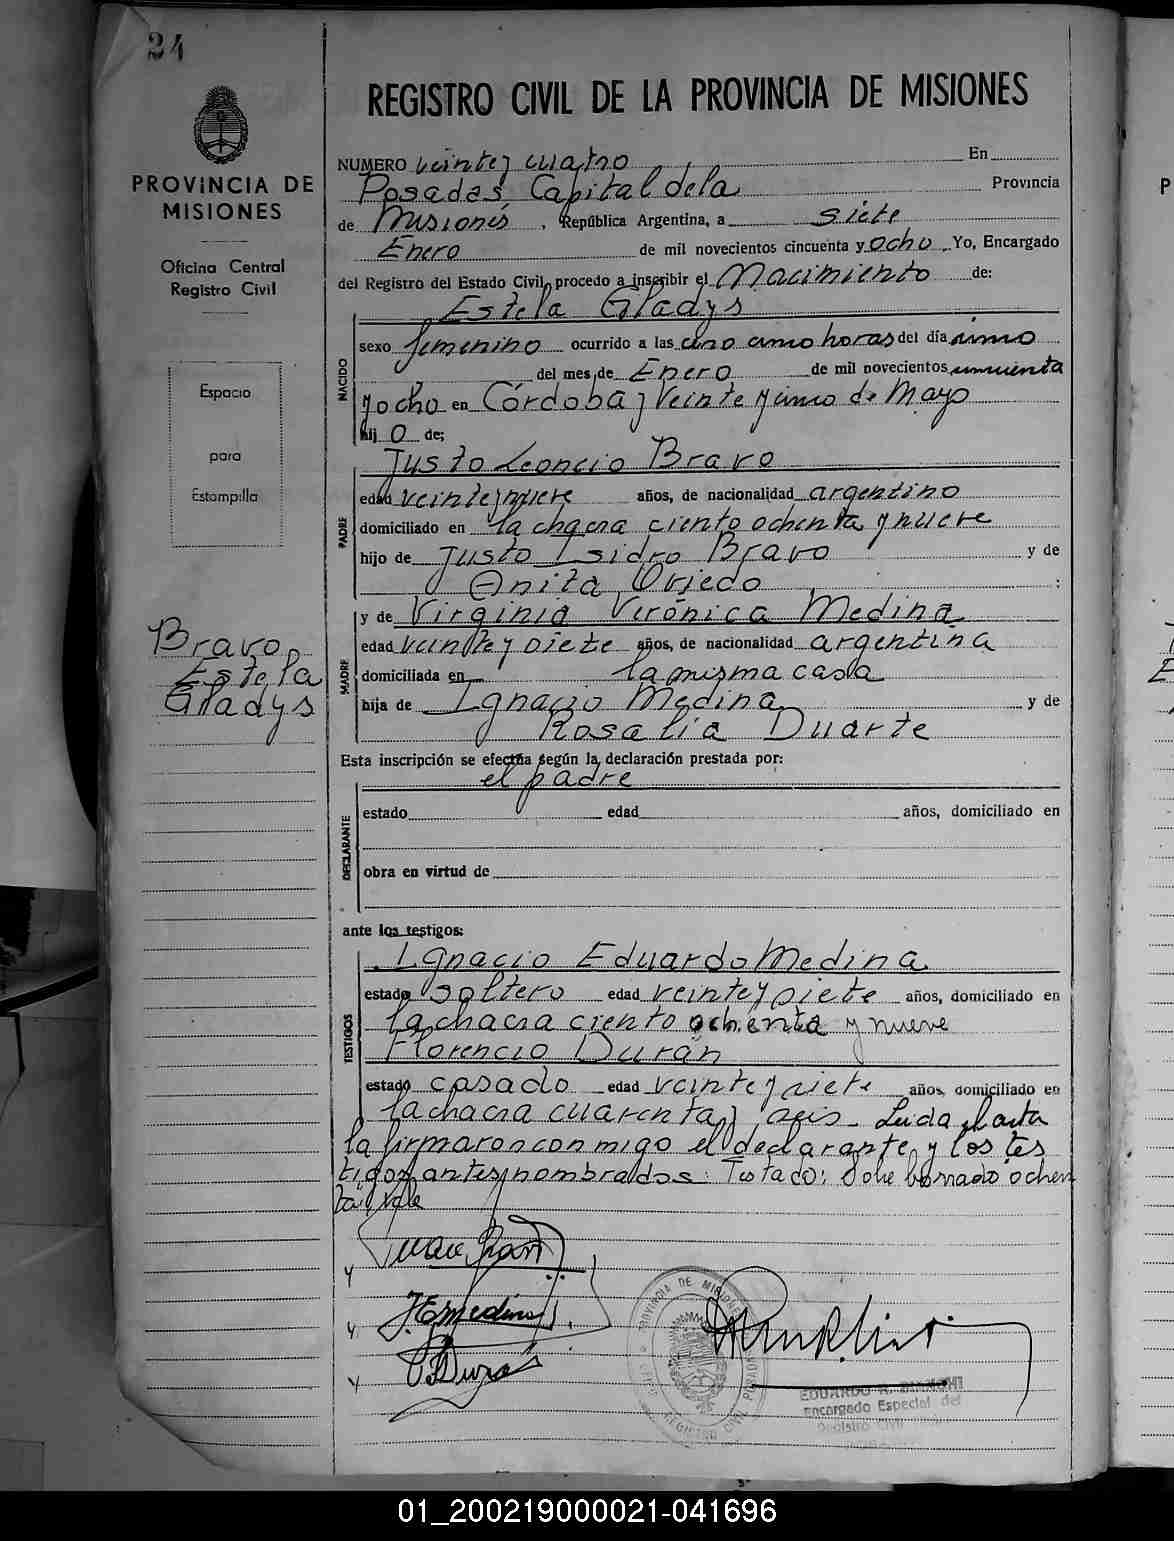 24
REGISTRO CIVIL DE LA PROVINCIA DE MISIONES
PROVINCIA DE
MISIONES
Oficina Central
Registro Civil
Espacio
para
Estampilla
Bravo
Estela
Gladys
NUMERO veinte y cuatro En
Posadas Capital de la Provincia
de Misiones, República Argentina, a siete
Enero de mil novecientos cincuenta y ocho. Yo, Encargado
del Registro del Estado Civil, procedo a inscribir el Nacimiento de:
Estela Gladys
NACIDO
sexo femenino ocurrido a las cinco horas del día cinco
del mes de Enero de mil novecientos cincuenta
y ocho en Córdoba y Veinte y cinco de Mayo
hij o de;
Justo Leoncio Bravo
PADRE
edad veinte y nueve años, de nacionalidad argentino
domiciliado en la chacra ciento ochenta y nueve
hijo de Justo Isidro Bravo y de
Anita Oviedo :
y de Virginia Verónica Medina
MADRE
edad veinte y siete años, de nacionalidad argentina
domiciliada en la misma casa
hija de Ignacio Medina y de
Rosalia Duarte
Esta inscripción se efectúa según la declaración prestada por:
el padre
DECLARANTE
estado edad años, domiciliado en
obra en virtud de
ante los testigos:
Ignacio Eduardo Medina
TESTIGOS
estado soltero edad veinte y siete años, domiciliado en
la chacra ciento ochenta y nueve
Florencio Durán
estado casado edad veinte y siete años, domiciliado en
la chacra cuarenta y seis - Leida el acta
la firmaron con migo el declarante y los tes
tigos antes nombrados: Testado: Sobre borrado ochen
ta: vale
I E Medina
F Durán
PROVINCIA DE MISIONES
REGISTRO CIVIL
EDUARDO A. BIANCHI
Encargado Especial del
Registro Civil
P
01_200219000021-041696